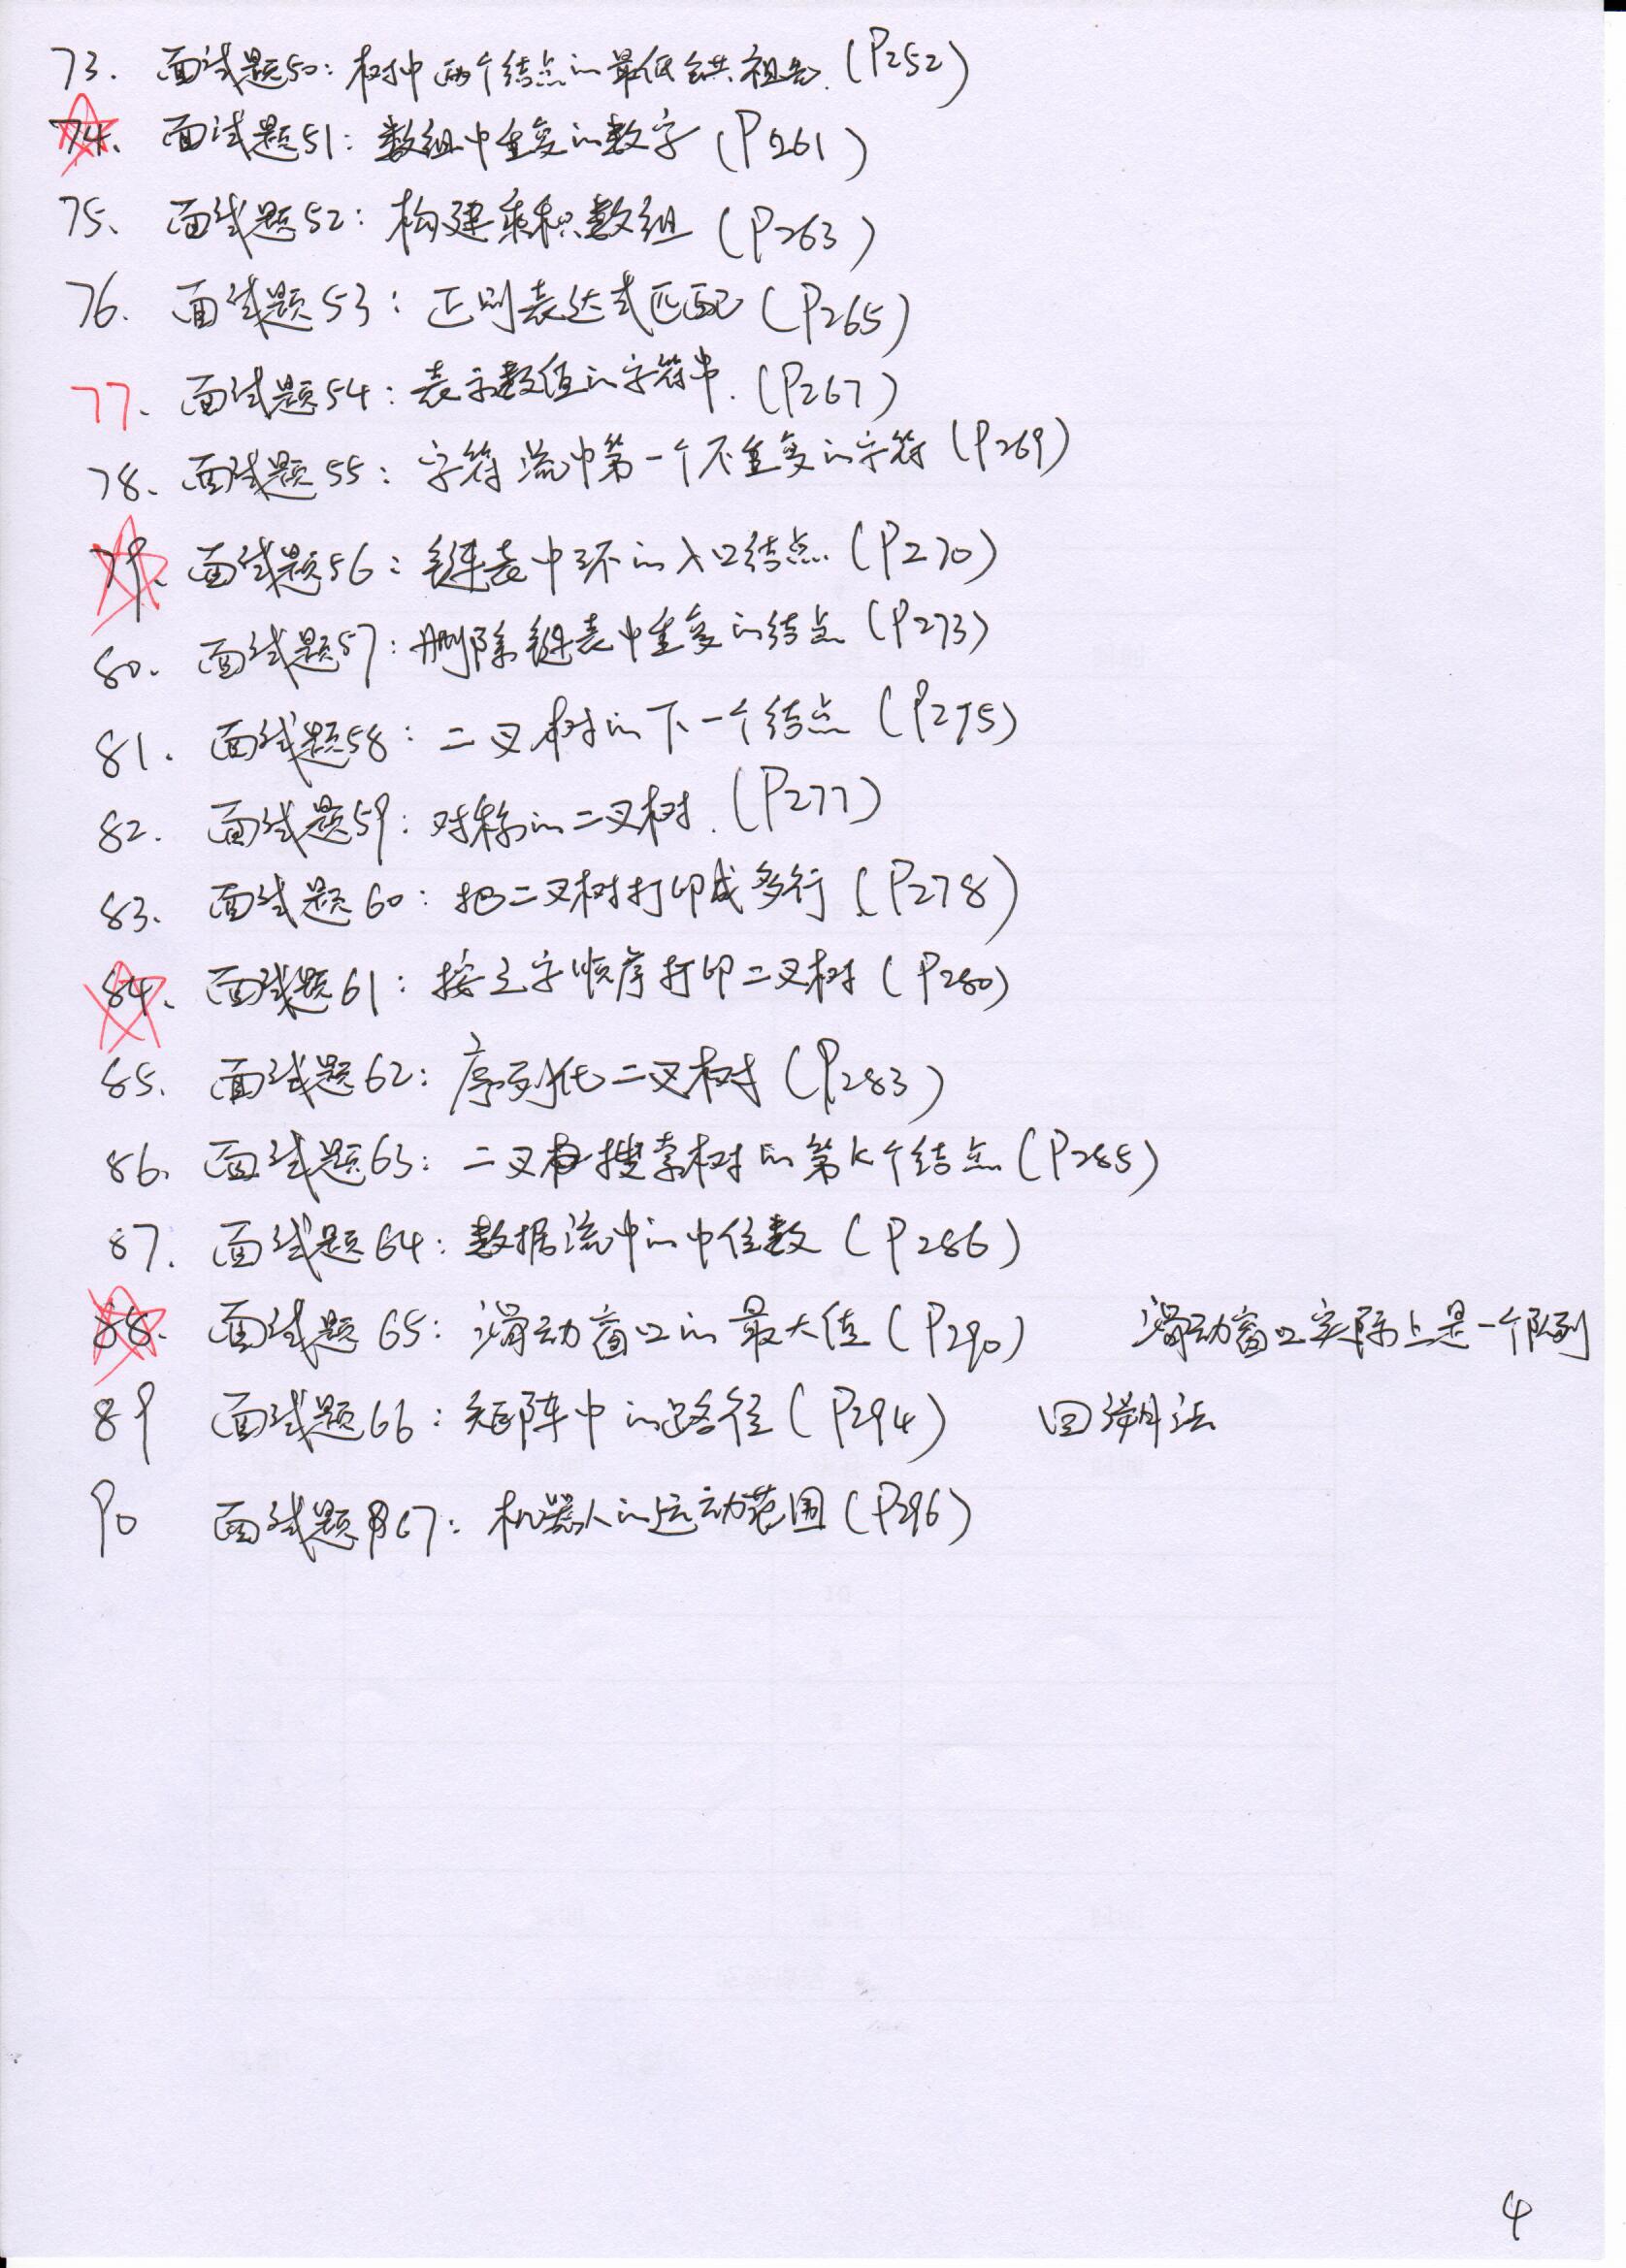 73. 面试题50：树中两个结点的最低公共祖先.(P252)
74. 面试题51：数组中重复的数字(P261)
75. 面试题52：构建乘积数组(P263)
76. 面试题53：正则表达式匹配(P265)
77. 面试题54：表示数值的字符串.(P267)
78. 面试题55：字符流中第一个不重复的字符(P269)
79. 面试题56：链表中环的入口结点.(P270)
80. 面试题57：删除链表中重复的结点(P273)
81. 面试题58：二叉树的下一个结点(P275)
82. 面试题59：对称的二叉树.(P277)
83. 面试题60：把二叉树打印成多行(P278)
84. 面试题61：按之字顺序打印二叉树(P280)
85. 面试题62：序列化二叉树(P283)
86. 面试题63：二叉搜索树的第k个结点(P285)
87. 面试题64：数据流中的中位数(P286)
88. 面试题65：滑动窗口的最大值(P290) 滑动窗口实际上是一个队列
89 面试题66：矩阵中的路径(P294) 回溯法
90 面试题67：机器人的运动范围(P296)
4